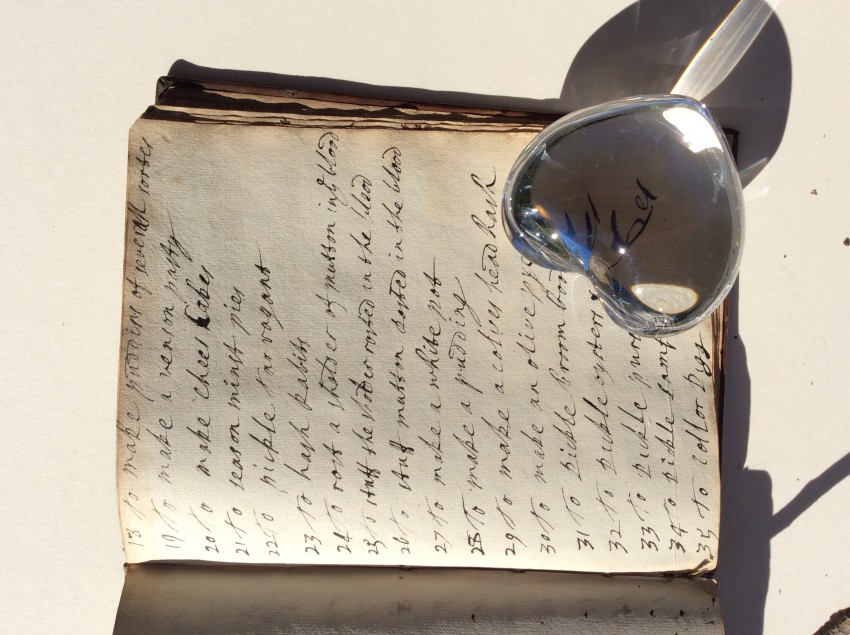 18 to make puddins of severall sortes
19 to make a venson pasty
20 to make chees Cakes
21 to season minst pies
22 to pickle tarragant
23 to hash rabits
24 to rost a sholder of mutton in the blood
25 to stuff the sholder rosted in the blood
26 to stuf mutton rosted in the blood
27 to make a white pot
28 to make a pudding
29 to make a calves head hash
30 to make an olive
31 to pickle broom
32 to pickle oysters
33 to pickle
34 to pickle
35 to collor